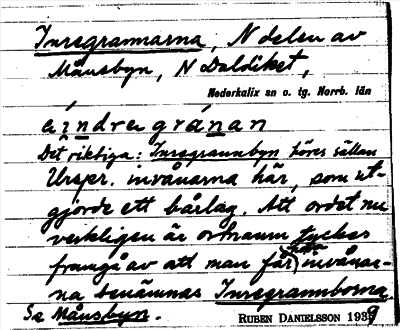 Inregrannarna, N delen av
Månsbyn, N Daldiket,
Nederkalix sn o. tg. Norrb. län
a índregránan
Det riktiga: Inregrannbyn höres sällan
Urspr. invånarna här, som ut-
gjorde ett bålag. Att ordet nu
verkligen är ortnamn tycks
framgå av att man får höra invånar-
na benämnas Inregrannborna
Se Månsbyn.
RUBEN DANIELSSON 1939